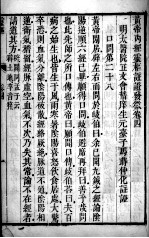 黃帝內經靈樞註證發微卷四
口問第二十八
黃帝閒居辟左右而問於岐伯曰余已聞九鍼之經論陰
陽逆順六經已畢願得口問岐伯避席再拜曰善乎哉問
也此先師之所口傳也黃帝曰願聞口傳岐伯答曰夫百
病之始生也皆生於風雨寒暑陰陽喜怒飲食居處大驚
卒恐則血氣分離陰陽破散經絡厥絕脈道不通陰陽相
逆衛氣稽留經脈虛空血氣不次乃失其常論不在經者
請道其方